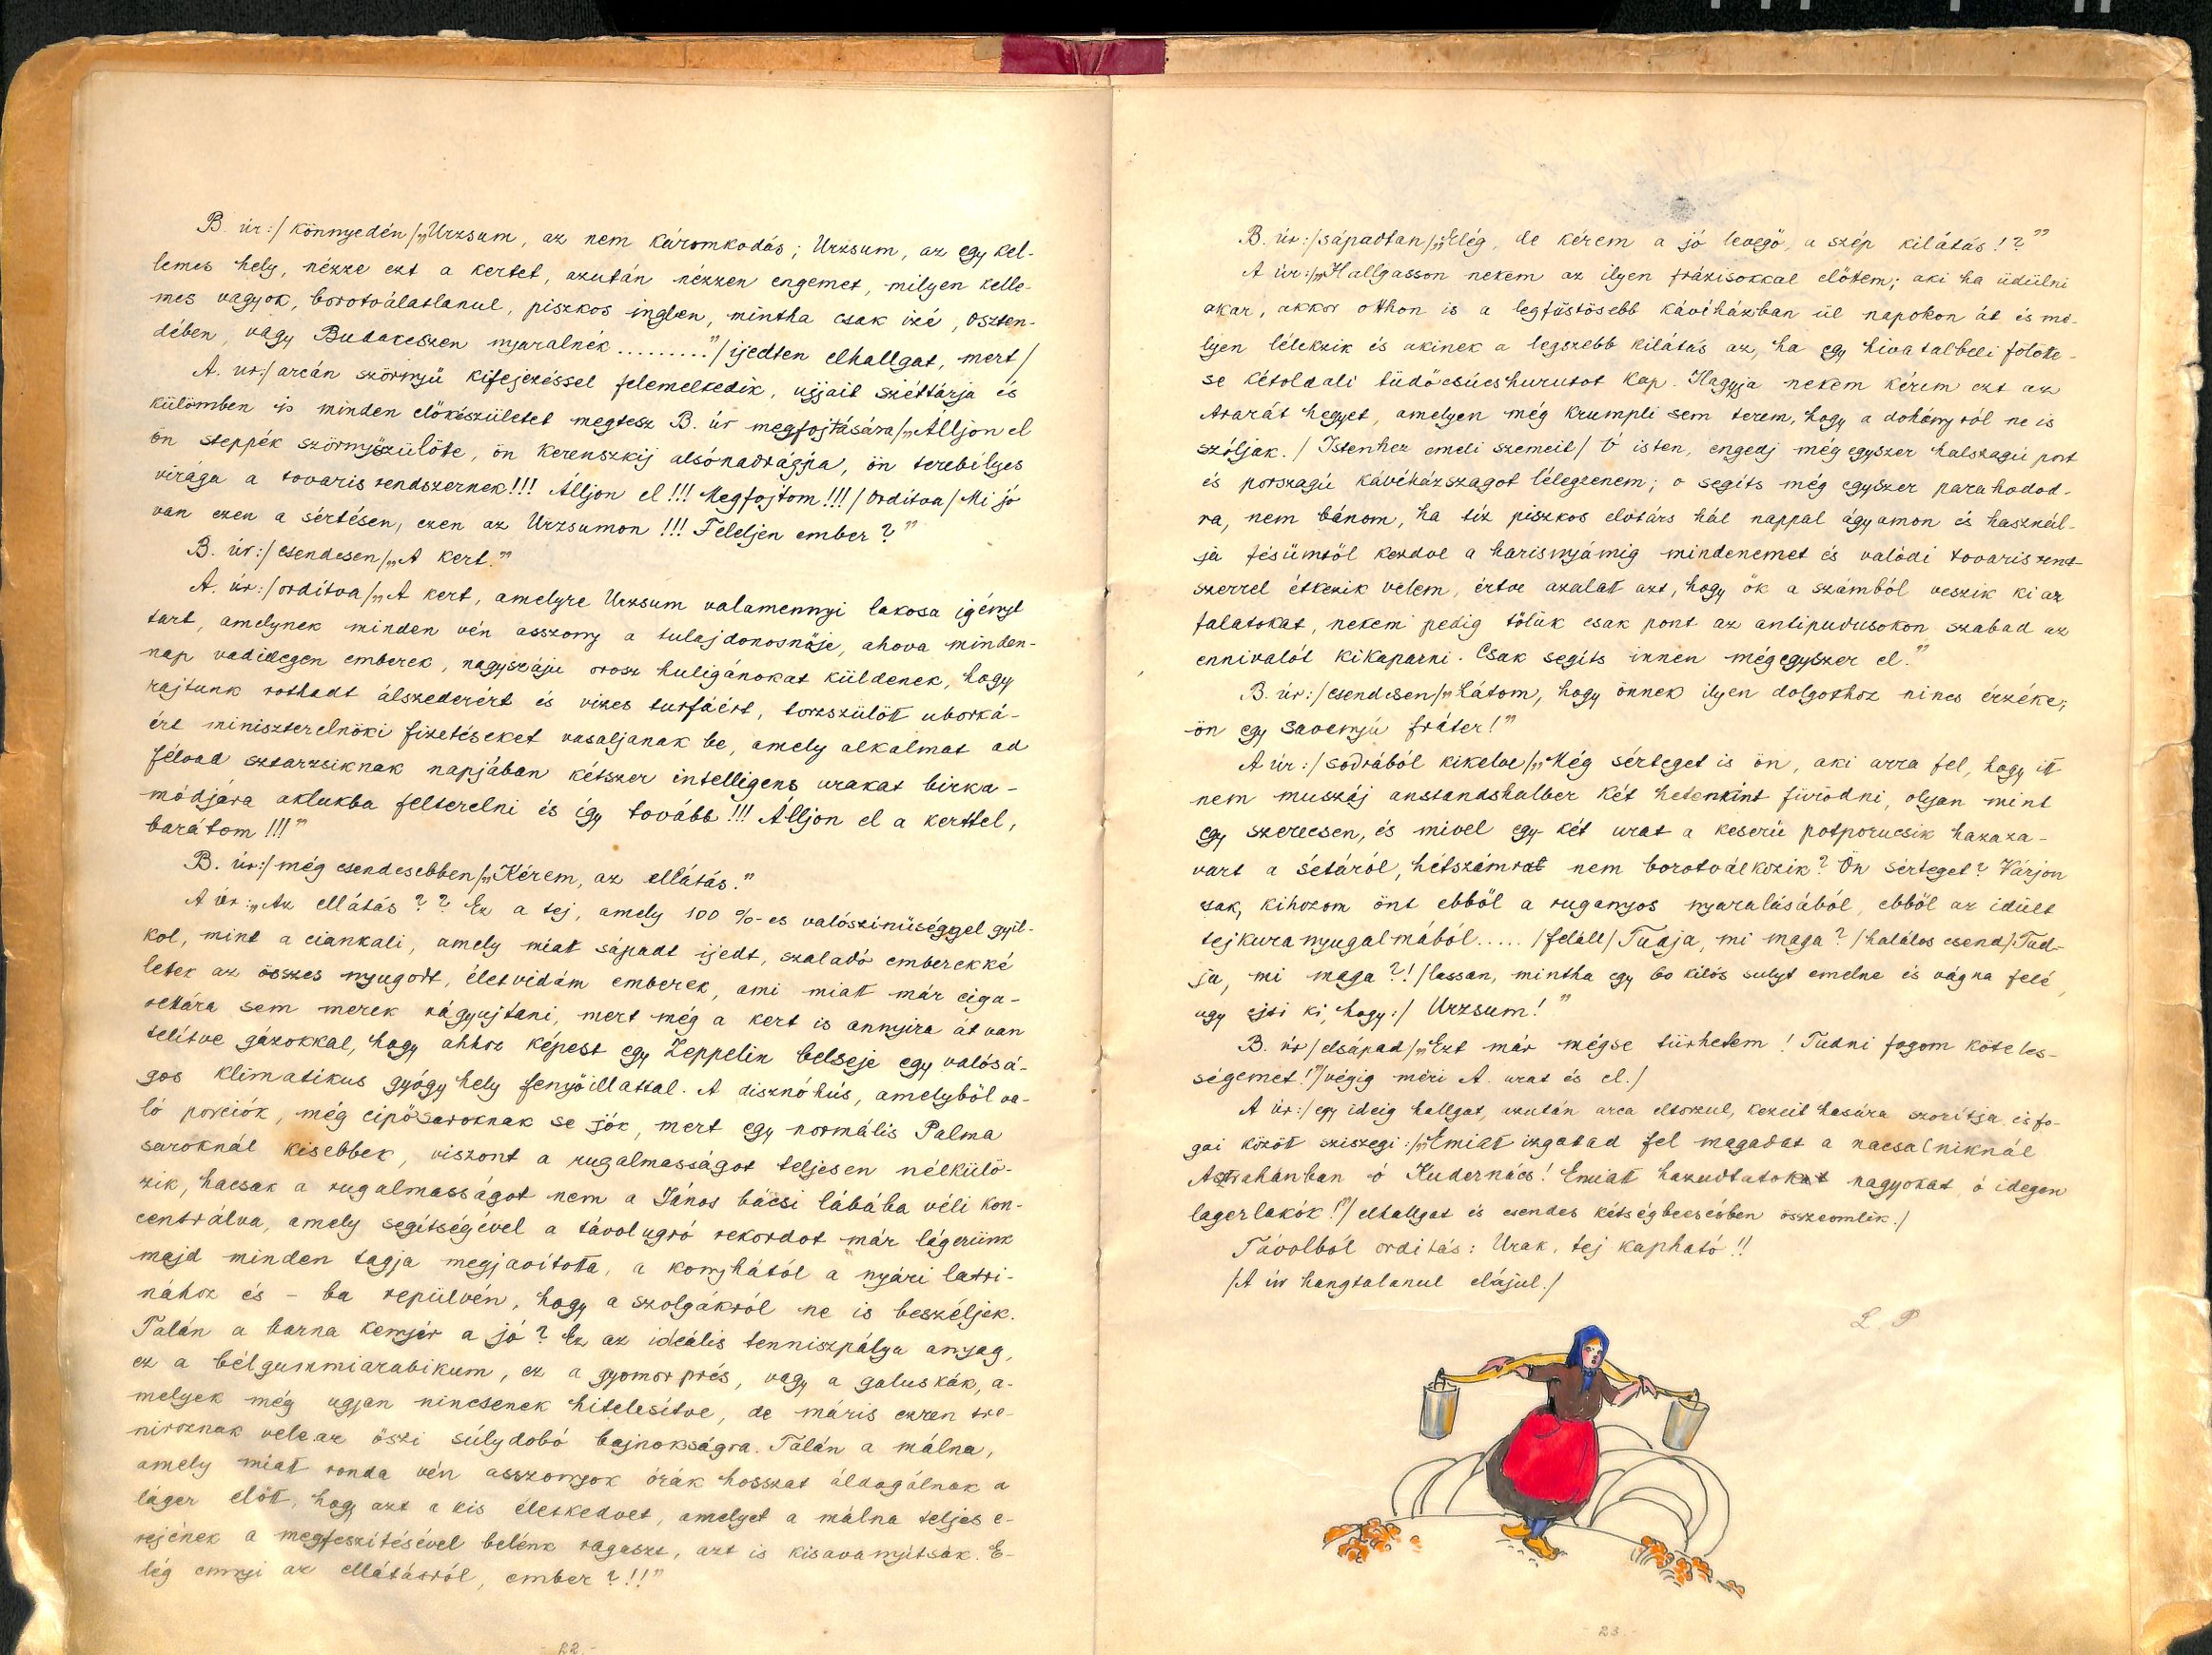 B. úr:/könnyedén/„Urzsum, az nem káromkodás; Urzsum, az egy kel-
lemes hely, nézze ezt a kertet, azután nézzen engemet, milyen kelle-
mes vagyok, borotválatlanul, piszkos ingben, mintha csak izé, Oszten-
dében, vagy Budakeszen nyaralnék ........."/ijedten elhallgat, mert/
A. ur:/arcán szörnyü kifejezéssel felemelkedik, ujjait széttárja és
külömben is minden előkészületet megtesz B. úr megfojtására/„Álljon el
ön steppék szörnyszülöte, ön Kerenszkij alsónadrágja, ön terebélyes
virága a tovaris rendszernek!!! Álljon el!!! Megfojtom!!!/orditva/Mi jó
van ezen a sértésen, ezen az Urzsumon!!! Feleljen ember?"
B. úr:/csendesen/„A kert."
A. úr:/orditva/„A kert, amelyre Urzsum valamennyi lakosa igényt
tart, amelynek minden vén asszony a tulajdonosnője, ahova minden-
nap vadidegen emberek, nagyszáju orosz huligánokat küldenek, hogy
rajtunk rothadt álszederért és vizes turfáért, torzszülöt uborká-
ért miniszterelnöki fizetéseket vasaljanak be, amely alkalmat ad
félvad sztarzsiknak napjában kétszer intelligens urakat birka-
módjára aklukba felterelni és így tovább!!! Álljon el a kerttel,
barátom!!!"
B. úr:/még csendesebben/„Kérem, az ellátás."
A úr:„Az ellátás?? Ez a tej, amely 100%-es valószinüséggel gyil-
kol, mint a ciankali, amely miat sápadt ijedt, szaladó emberekké
letek az összes nyugodt, életvidám emberek, ami miatt már ciga-
rettára sem merek rágyujtani, mert még a kert is annyira át van
telítve gázokkal, hogy ahhoz képest egy Zeppelin belseje egy valósá-
gos klimatikus gyógyhely fenyőillattal. A disznóhús, amelyből va-
ló porciók, még cipősaroknak se jók, mert egy normális Palma
saroknál kisebbek, viszont a rugalmasságot teljesen nélkülö-
zik, hacsak a rugalmasságot nem a János bácsi lábába véli kon-
centrálva, amely segítségével a távolugró rekordot már lágerünk
majd minden tagja megjavította, a konyhától a nyári latri-
nához és – ba repülvén, hogy a szolgákról ne is beszéljek.
Talán a barna kenyér a jó? Ez az ideális teniszpálya anyag,
ez a bélgummiarabikum, ez a gyomorprés, vagy a galuskák, a-
melyek még ugyan nincsenek hitelesítve, de máris ezren tre-
niroznak vele az őszi súlydobó bajnokságra. Talán a málna,
amely miatt ronda vén asszonyok órák hosszat áldogálnak a
láger előtt, hogy azt a kis életkedvet, amelyet a málna teljes e-
rejének a megfeszitésével belénk ragaszt, azt is kisavanyítsák. E-
lég ennyi az ellátásról, ember?!!"
22.-
B. úr:/sápadtan/„Elég, de kérem a jó levegő, a szép kilátás!?"
A úr:/„Hallgasson nekem az ilyen frázisokkal előtem; aki ha üdülni
akar, akkor otthon is a legfüstösebb kávéházban ül napokon át és mé-
lyen lélekzik és akinek a legszebb kilátás az, ha egy hivatalbeli fölöte-
se kétoldali tüdőcsúcshurutot kap. Hagyja nekem kérem ezt az
Ararát hegyet, amelyen még krumpli sem terem, hogy a dohányról ne is
szóljak./Istenhez emeli szemeit/Ó isten, engedj még egyszer halszagú port
és porszagú kávéházszagot lélegzenem; o segíts még egyszer parahodod-
ra, nem bánom, ha tíz piszkos elvtárs hál nappal ágyamon és használ-
ja fésümtől kezdve a harisnyámig mindenemet és valódi tovaris rend-
szerrel étkezik velem, értve azalat azt, hogy ők a számból veszik ki az
falatokat, nekem pedig tőlük csak pont az antipudusokon szabad az
ennivalót kikaparni. Csak segíts innen mégegyszer el."
B. úr:/csendesen/„Látom, hogy önnek ilyen dolgokhoz nincs érzéke,
ön egy savanyú fráter!"
A úr:/sodrából kikelve/„Még sérteget is ön, aki arra fel, hogy itt
nem muszáj anstandshalber két hetenkint fürödni, olyan mint
egy szerecsen, és mivel egy-két urat a keserü potporucsik hazaza-
vart a sétáról, hétszámrat nem borotválkozik? Ön sérteget? Várjon
csak, kihozom önt ebből a ruganyos nyaralásából, ebből az idült
tejkura nyugalmából...../feláll/Tudja, mi maga?/halálos csend/Tud-
ja, mi maga?!/lassan, mintha egy 60 kilós sulyt emelne és vágna felé,
ugy ejti ki, hogy:/Urzsum!"
B. úr/elsápad/„Ezt már mégse türhetem! Tudni fogom köteles-
ségemet!"/végig méri A. urat és el./
A úr:/egy ideig hallgat, azután arca eltorzul, kezeit hasára szorítja és fo-
gai között sziszegi:/„Emiatt izgatad fel magadat a nacsalniknál
Astrahánban ó Kudernács! Emiatt hazudtatok nagyokat ó idegen
lagerlakók!"/elhallgat és csendes kétségbeesésben összeomlik./
Távolból orditás: Urak, tej kapható!!
/A úr hangtalanul elájul./
L. P.
23.-